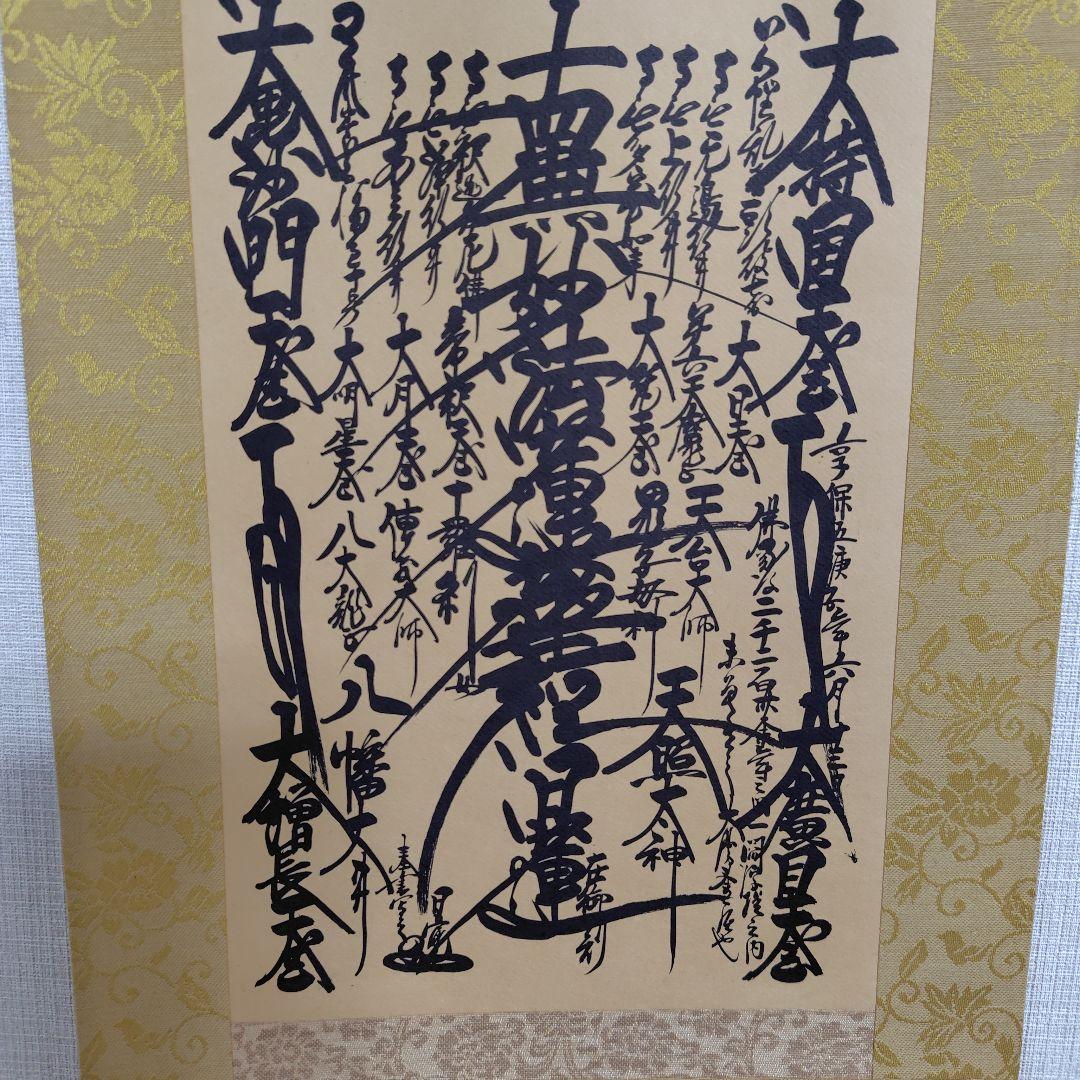 大持国天王
大廣目天王
享保五庚子年六月十三日
若悩乱者頭破七分
大日天王
佛滅後二千二百二十余年之間一閻浮提之内
未曾有之大漫荼羅也
南無無邊行菩薩
第六天魔王
天台大師
南無上行菩薩
大梵天王
天照太神
南無多宝如来
鬼子母神
南無妙法蓮華経
日蓮
在御判
南無釈迦牟尼佛
帝釈天王
十羅刹女
南無浄行菩薩
大月天王
傳教大師
南無安立行菩薩
大明星天王
八大龍王
八幡大菩薩
有供養者福過十号
大毘沙門天王
大増長天王
日寛